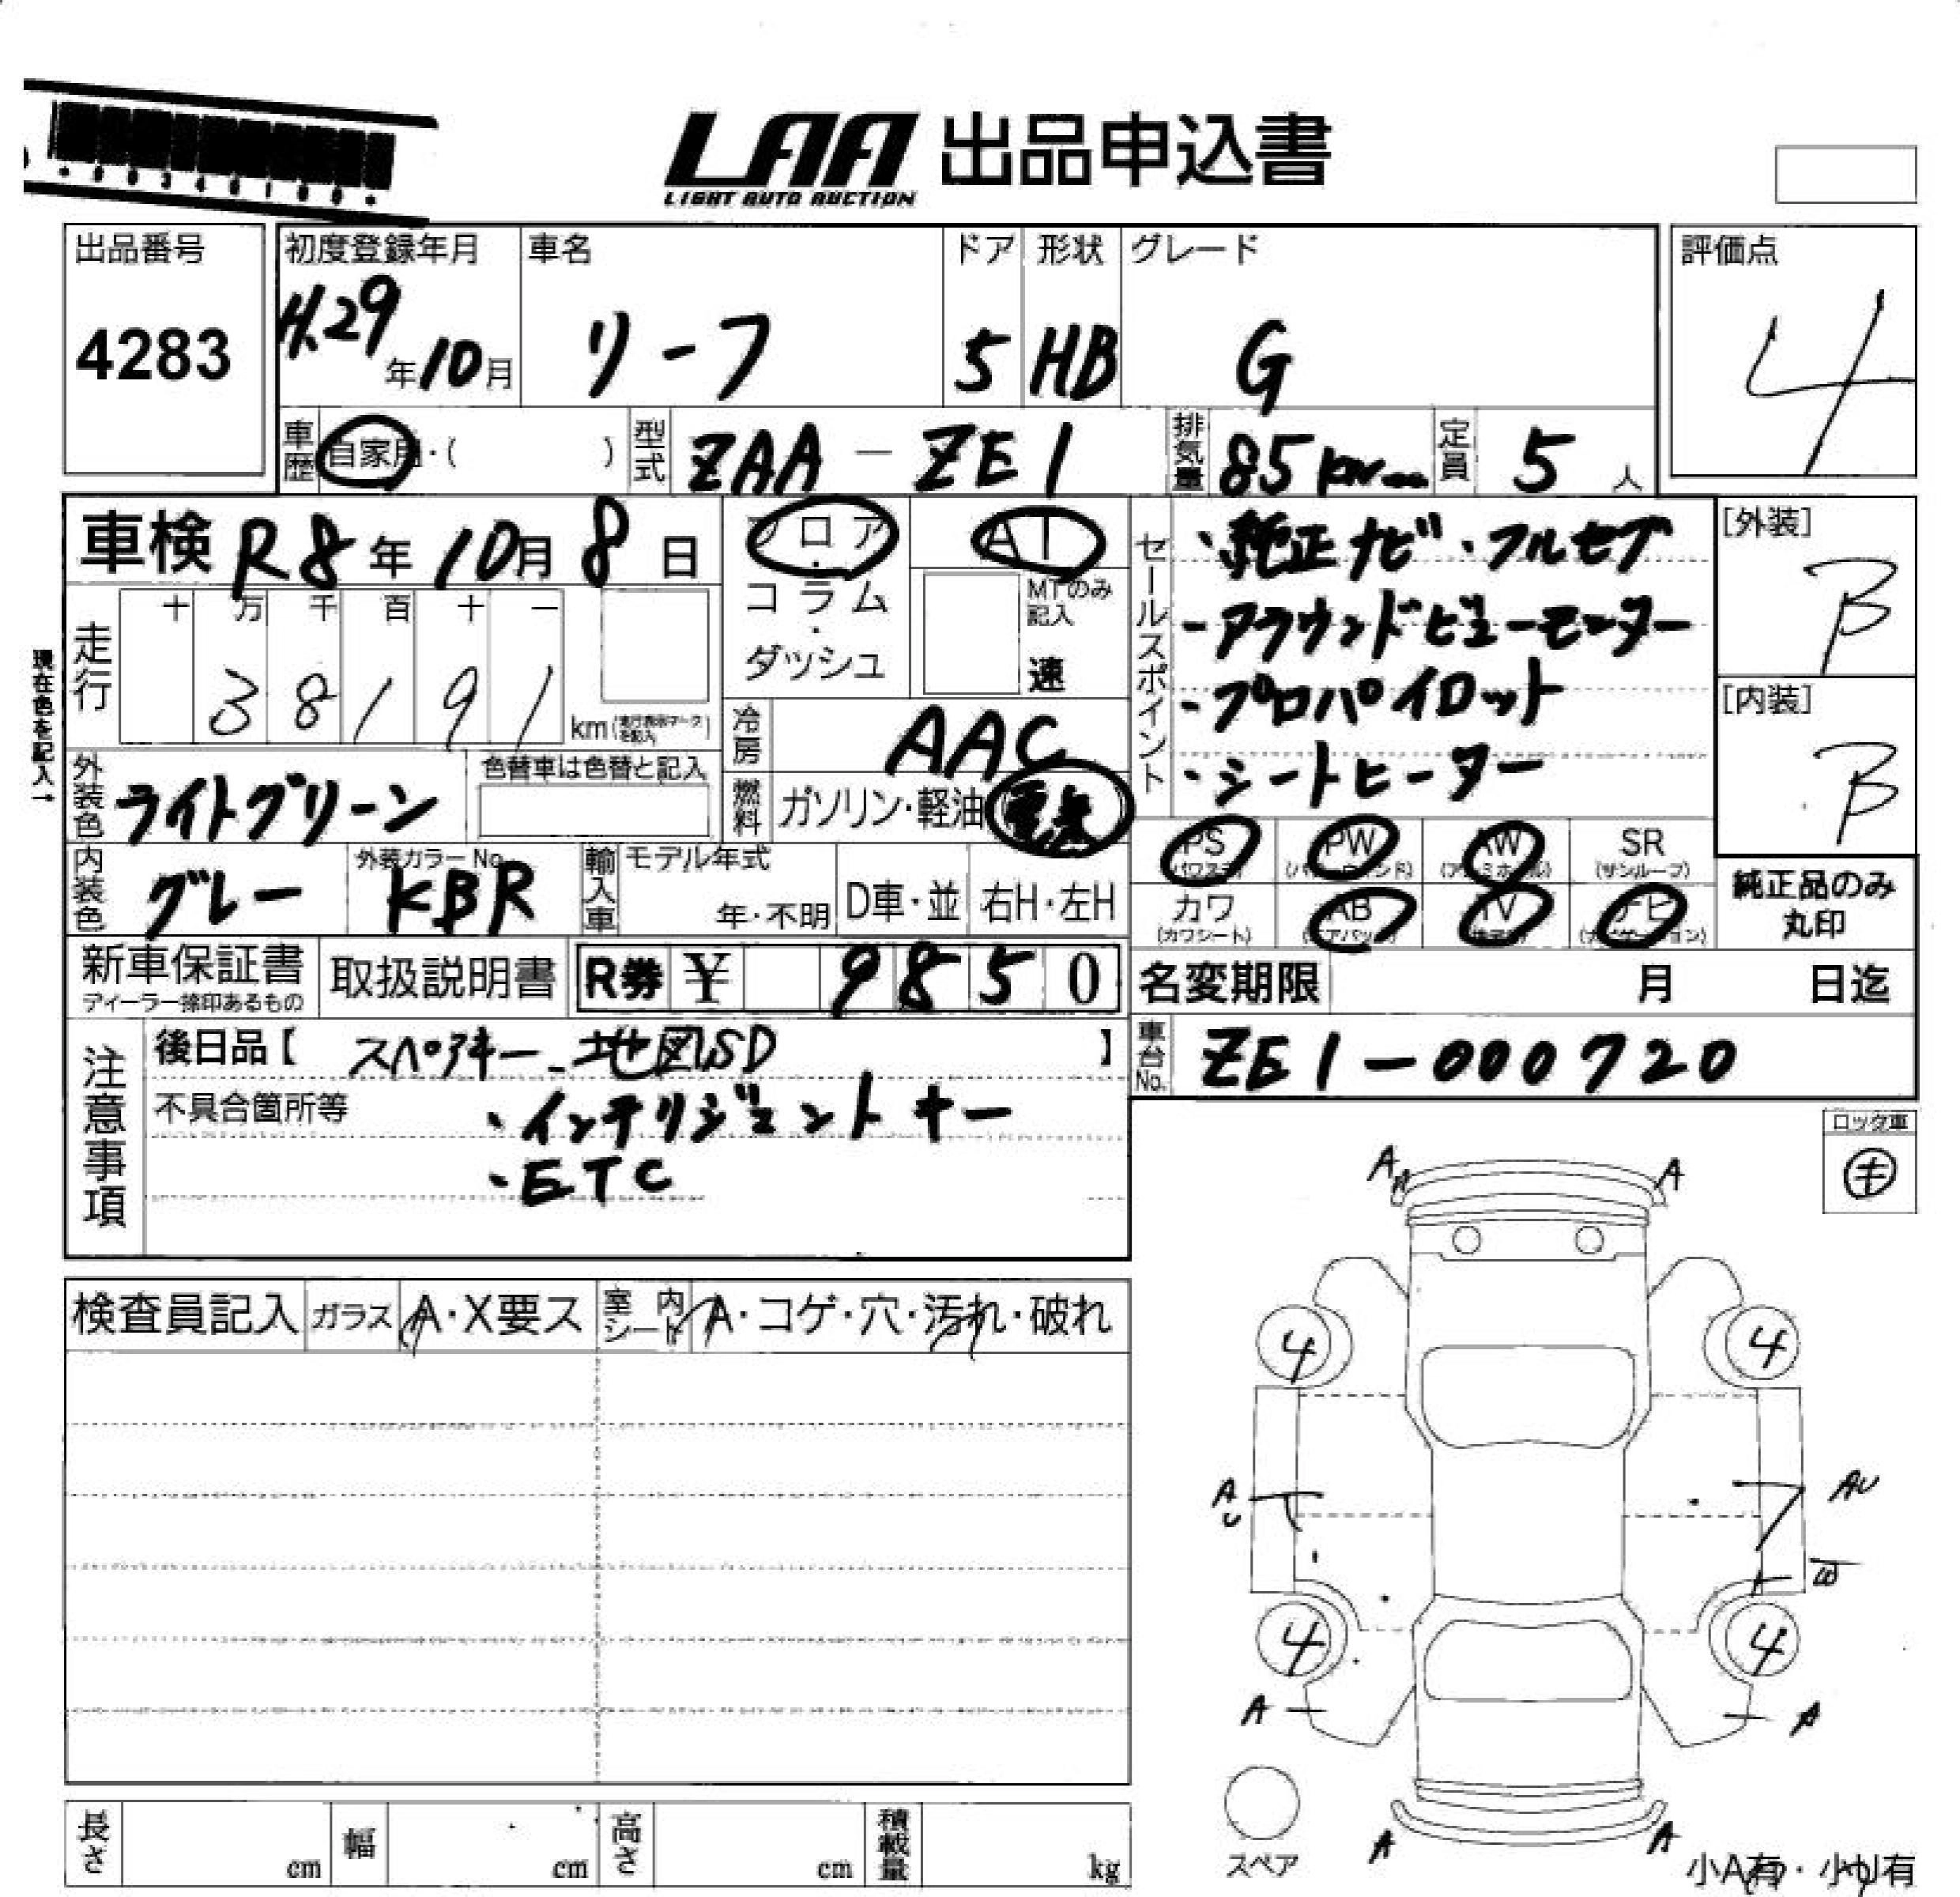 LAA 出品申込書
LIGHT AUTO AUCTION
出品番号 初度登録年月 車名 ドア 形状 グレード 評価点
4283 H.29年10月 リーフ 5 HB G 4
車歴 自家用・( ) 型式 ZAA-ZE1 排気量 85kw 定員 5人
車検 R8年10月8日 フロア・コラム・ダッシュ AT
MTのみ記入 速
セールスポイント
・純正ナビ・フルセグ
-アラウンドビューモニター
-プロパイロット
・シートヒーター
[外装] B
[内装] B
現在色を記入→
走行 十 万 千 百 十 一
38191 km(走行表示マークを記入)
冷房 AAC
外装色 ライトグリーン 色替車は色替と記入
燃料 ガソリン・軽油 電気
PS (パワステ) PW (パワーウィンド) AW (アルミホイル) SR (サンルーフ)
カワ (カワシート) AB (エアバック) TV ナビ (ナビゲーション)
純正品のみ
丸印
内装色 グレー 外装カラーNo. KBR 輸入車 モデル年式 年・不明 D車・並 右H・左H
新車保証書 ディーラー捺印あるもの 取扱説明書 R券 ¥ 9850 名変期限 月 日迄
注意事項
後日品【 スペアキー 地図SD 】
車台No. ZE1-000720
不具合箇所等 ・インテリジェントキー
・ETC
ロック車
キ
検査員記入 ガラス A・X要ス 室内シート A・コゲ・穴・汚れ・破れ
A A
4 4
A U AU
W
4 4
A A
スペア
A A
小A有・小U有
長さ cm 幅 cm 高さ cm 積載量 kg